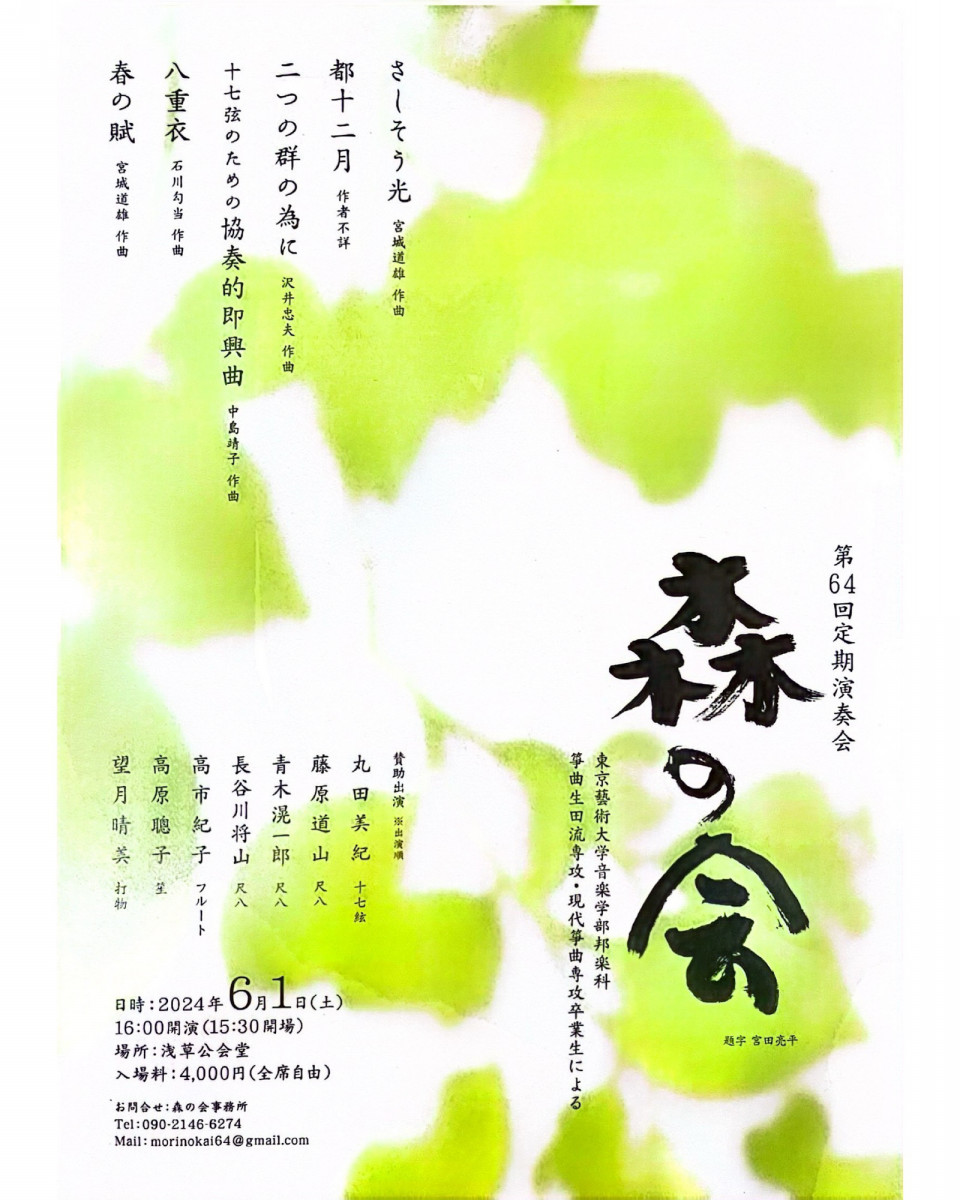 さしそう光 宮城道雄 作曲
都十二月 作者不詳
二つの群の為に 沢井忠夫 作曲
十七弦のための協奏的即興曲 中島靖子 作曲
八重衣 石川勾当 作曲
春の賦 宮城道雄 作曲
第64回定期演奏会
森の会
題字 宮田亮平
東京藝術大学音楽学部邦楽科
箏曲生田流専攻・現代箏曲専攻卒業生による
賛助出演 ※出演順
丸田美紀 十七絃
藤原道山 尺八
青木滉一郎 尺八
長谷川将山 尺八
高市紀子 フルート
高原聰子 笙
望月晴美 打物
日時：2024年6月1日（土）
16:00開演（15:30開場）
場所：浅草公会堂
入場料：4,000円（全席自由）
お問合せ：森の会事務所
Tel：090-2146-6274
Mail：morinokai64@gmail.com